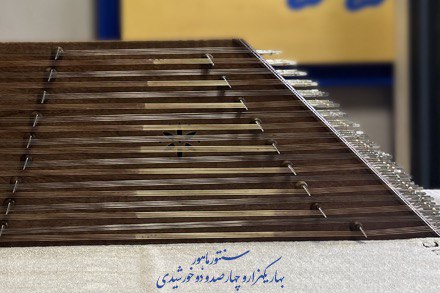 سنتور ماهور
بهار یکهزار و چهارصد و دو خورشیدی